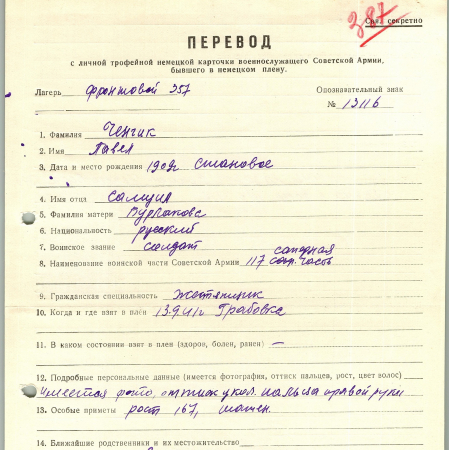 387
Сов. секретно
ПЕРЕВОД
с личной трофейной немецкой карточки военнослужащего Советской Армии,
бывшего в немецком плену.
Лагерь фронтовой 357
Опознавательный знак
№ 13116
1. Фамилия Ченчик
2. Имя Павел
3. Дата и место рождения 1909г Становое
4. Имя отца
5. Фамилия матери
6. Национальность русский
7. Воинское звание солдат
8. Наименование воинской части Советской Армии 117 саперная часть
9. Гражданская специальность
10. Когда и где взят в плен 13.9.41г Грабовка
11. В каком состоянии взят в плен (здоров, болен, ранен) —
12. Подробные персональные данные (имеется фотография, оттиск пальцев, рост, цвет волос)
Имеется фото, оттиск указ. пальца правой руки
13. Особые приметы рост 167,
14. Ближайшие родственники и их местожительство